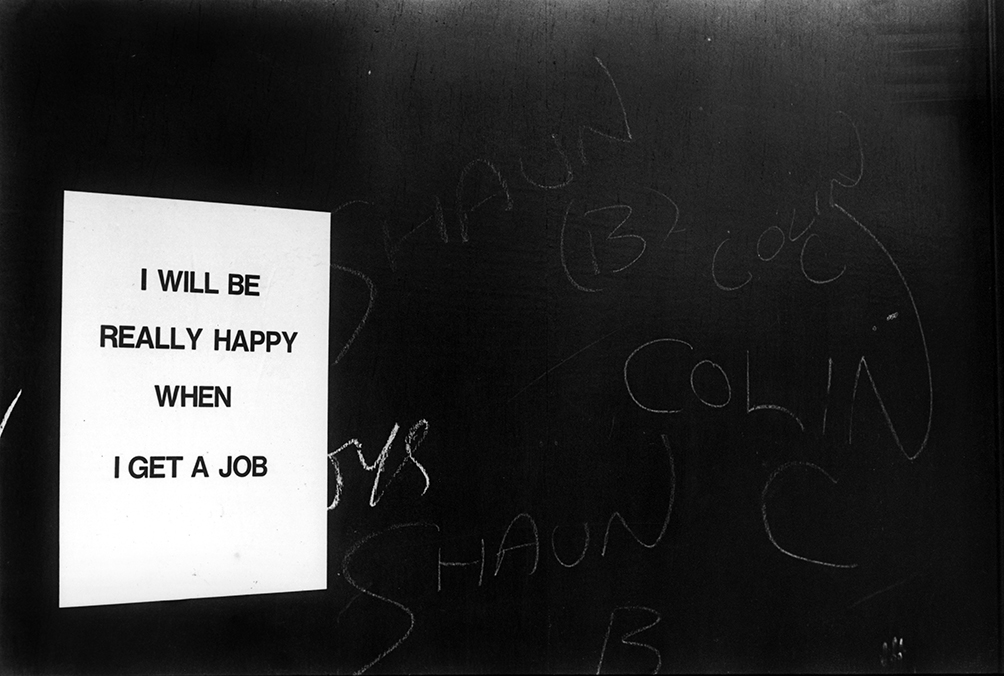 I WILL BE
REALLY HAPPY
WHEN
I GET A JOB
SHAUN
(B)
COLIN
C
COLIN
C
SHAUN
B